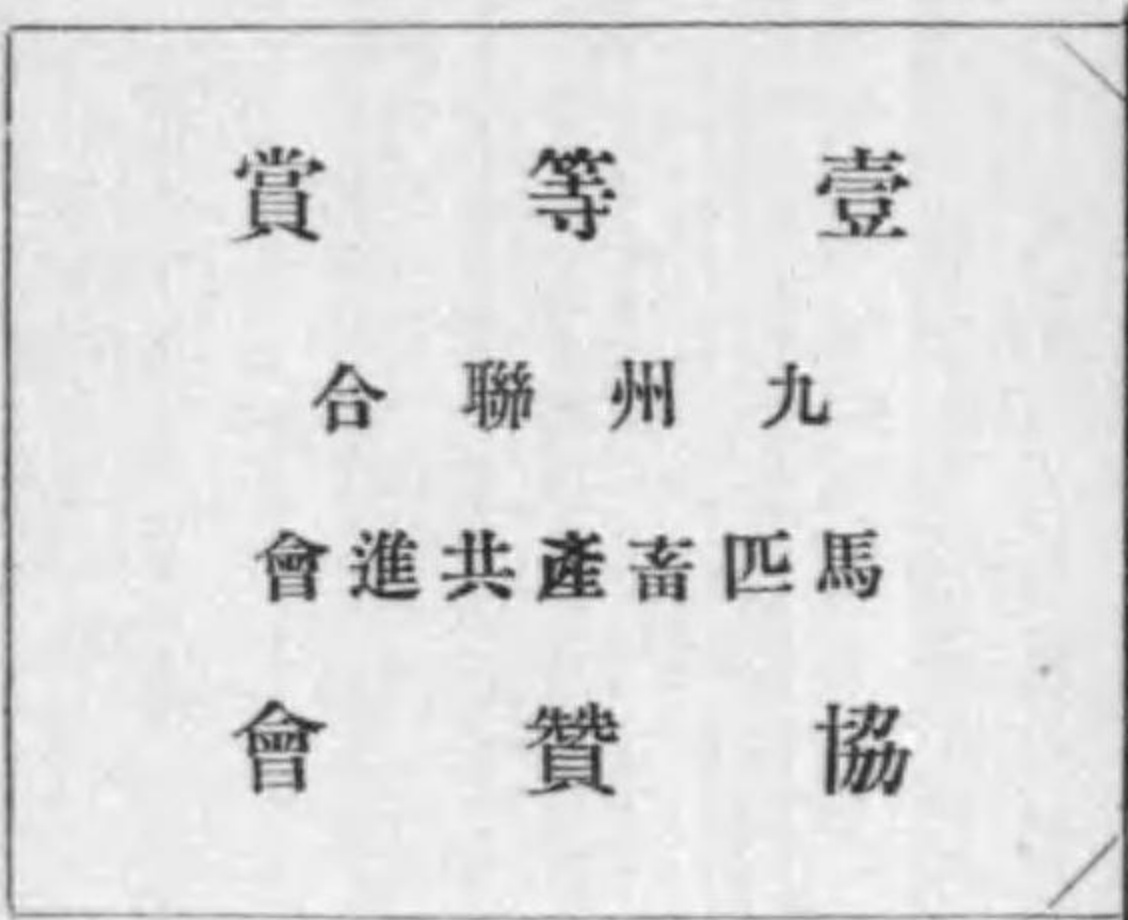 壹等賞
九州聯合
馬匹畜產共進會
協贊會